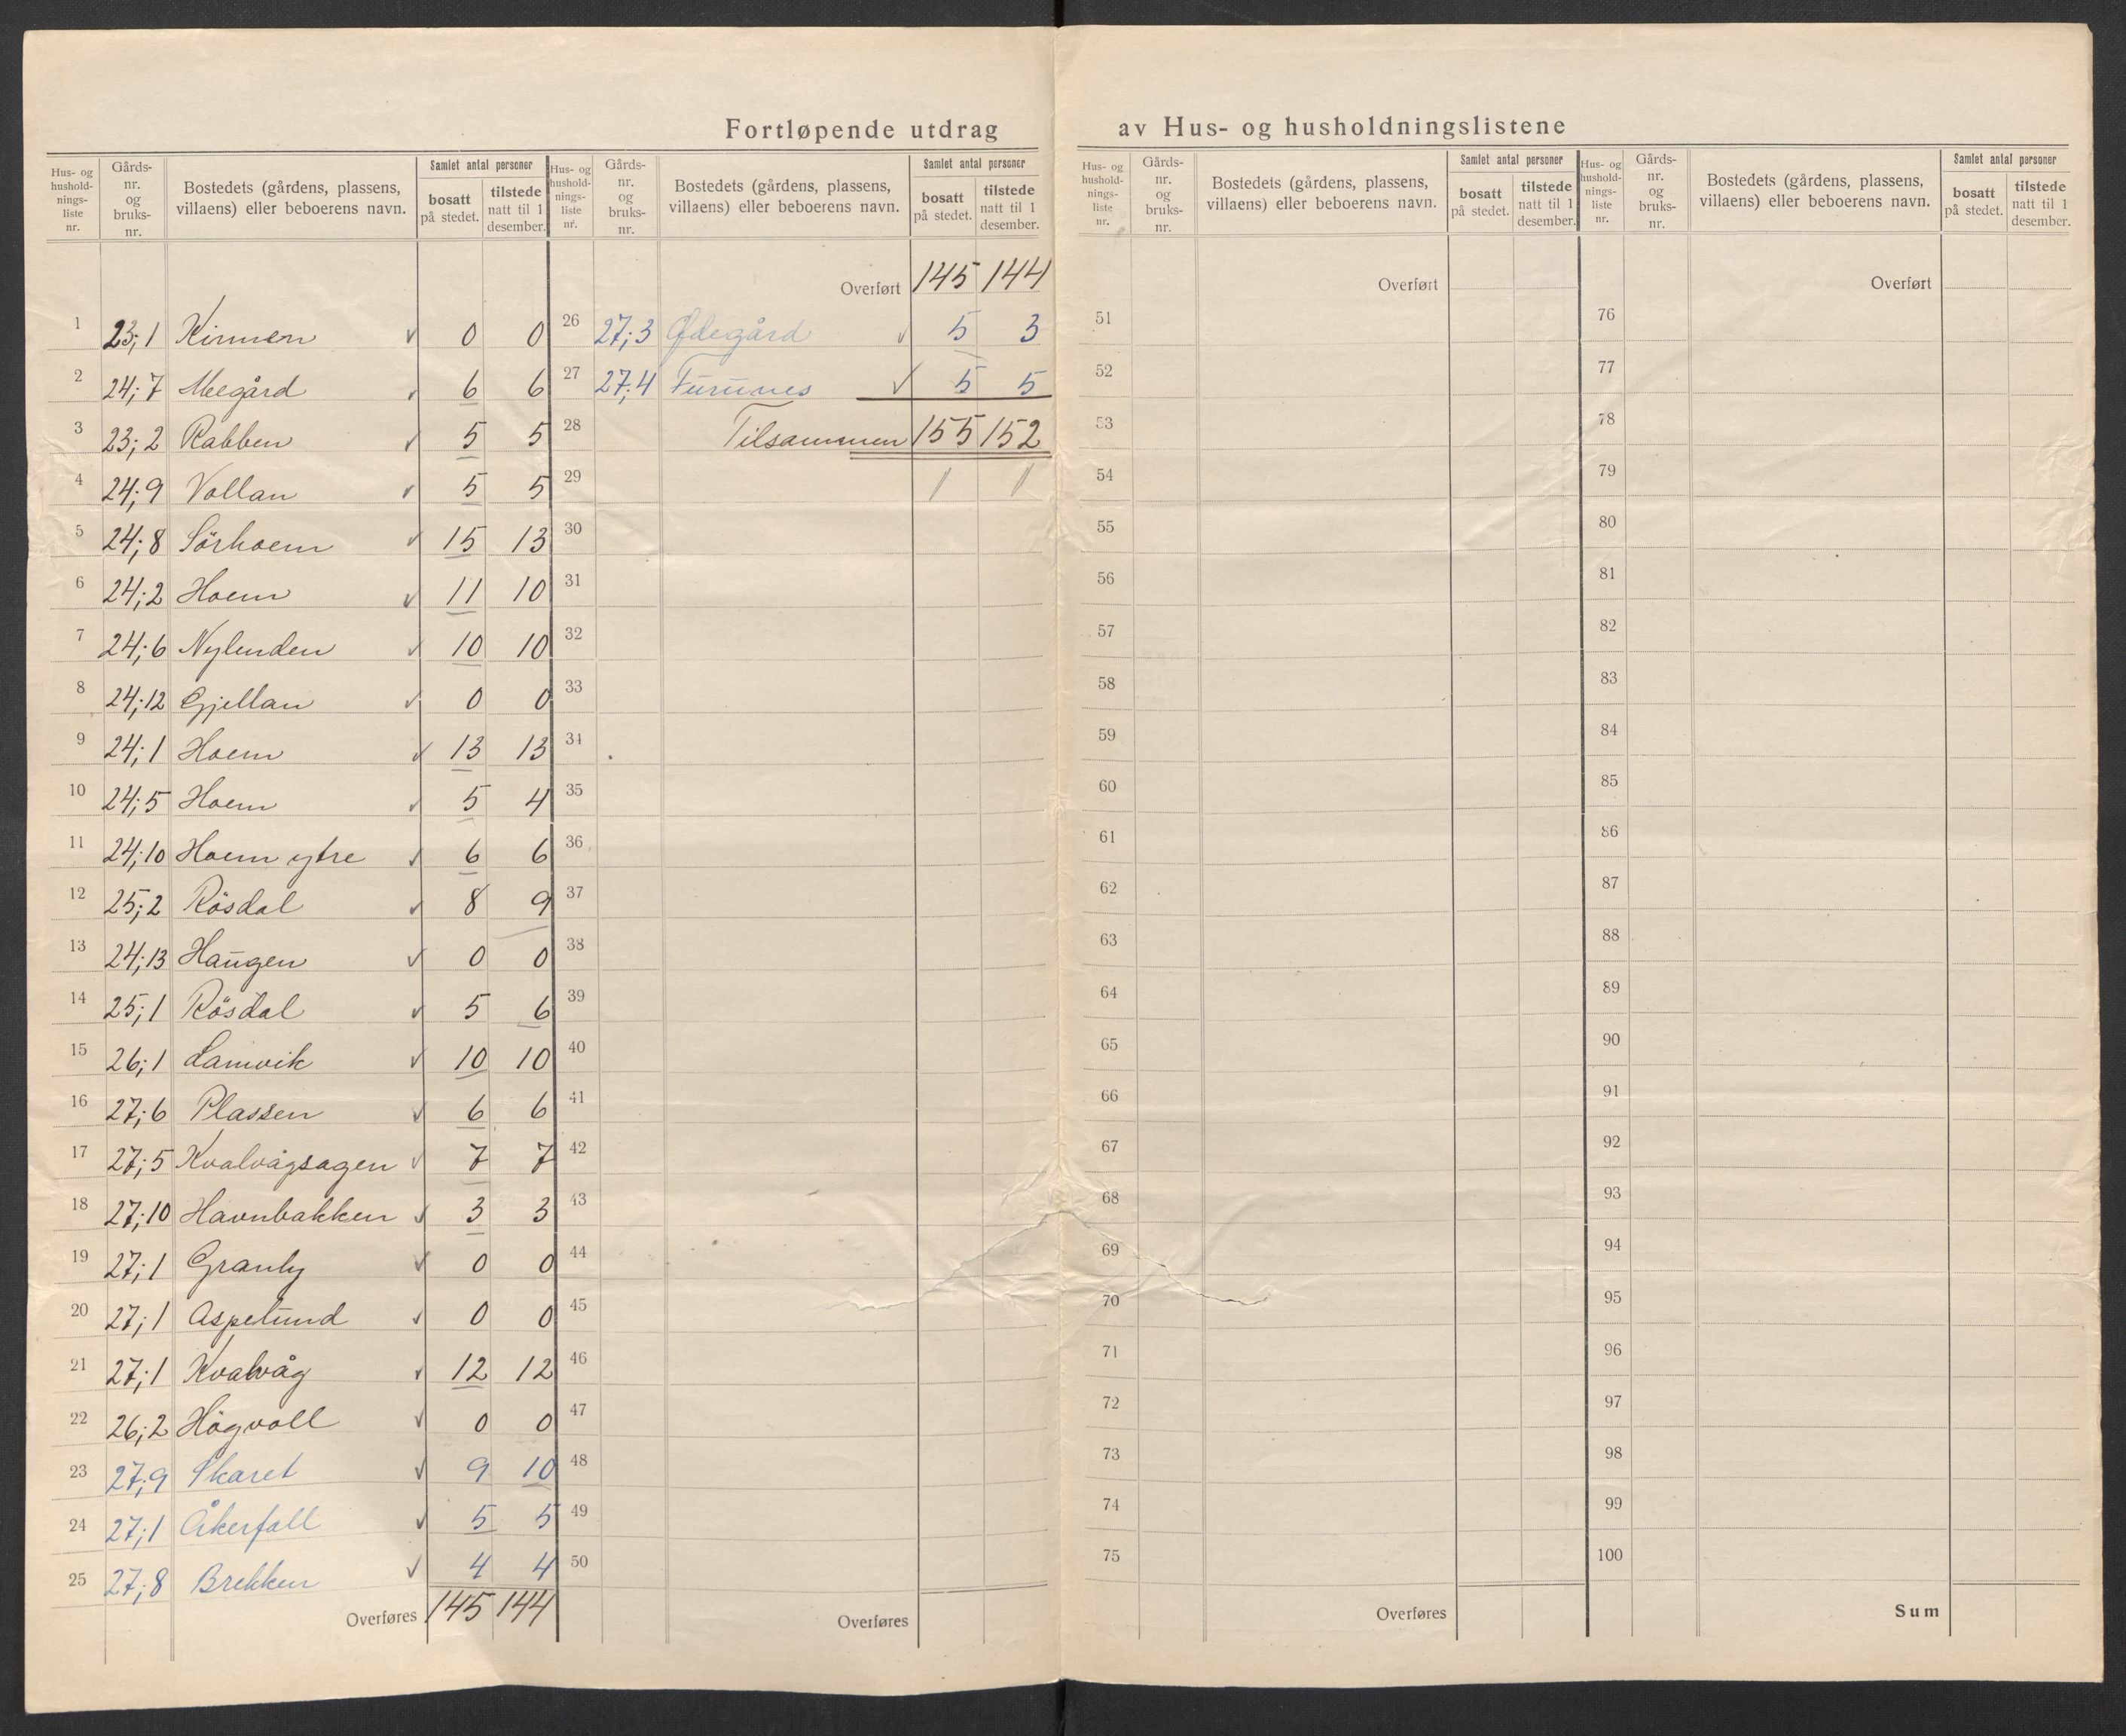 Fortløpende utdrag av Hus- og husholdningslistene
Hus- og hushold-nings-liste nr. | Gårds-nr. og bruks-nr. | Bostedets (gårdens, plassens, villaens) eller beboerens navn. | Samlet antal personer | bosatt på stedet. | tilstede natt til 1 desember.
1 23;1 Kinnen 0 0
2 24;7 Melgård 6 6
3 23;2 Rabben 5 5
4 24;9 Vollan 5 5
5 24;8 Sörhoem 15 13
6 24;2 Hoem 11 10
7 24;6 Nylenden 10 10
8 24;12 Gjellan 0 0
9 24;1 Hoem 13 13
10 24;5 Hoem 5 4
11 24;10 Hoem ytre 6 6
12 25;2 Rösdal 8 9
13 24;13 Haugen 0 0
14 25;1 Rösdal 5 6
15 26;1 Lamvik 10 10
16 27;6 Plassen 6 6
17 27;5 Kvalvågsagen 7 7
18 27;10 Havnbakken 3 3
19 27;1 Granly 0 0
20 27;1 Aspelund 0 0
21 27;1 Kvalvåg 12 12
22 26;2 Högvoll 0 0
23 27;9 Skaret 9 10
24 27;1 Åkerfall 5 5
25 27;8 Brekken 4 4
Overføres 145 144
Hus- og hushold-nings-liste nr. | Gårds-nr. og bruks-nr. | Bostedets (gårdens, plassens, villaens) eller beboerens navn. | Samlet antal personer | bosatt på stedet. | tilstede natt til 1 desember.
Overført 145 144
26 27;3 Ødegård 5 3
27 27;4 Furunes 5 5
28 Tilsammen 155 152
29
30
31
32
33
34
35
36
37
38
39
40
41
42
43
44
45
46
47
48
49
50
Overføres
Hus- og hushold-nings-liste nr. | Gårds-nr. og bruks-nr. | Bostedets (gårdens, plassens, villaens) eller beboerens navn. | Samlet antal personer | bosatt på stedet. | tilstede natt til 1 desember.
Overført
51
52
53
54
55
56
57
58
59
60
61
62
63
64
65
66
67
68
69
70
71
72
73
74
75
Overføres
Hus- og hushold-nings-liste nr. | Gårds-nr. og bruks-nr. | Bostedets (gårdens, plassens, villaens) eller beboerens navn. | Samlet antal personer | bosatt på stedet. | tilstede natt til 1 desember.
Overført
76
77
78
79
80
81
82
83
84
85
86
87
88
89
90
91
92
93
94
95
96
97
98
99
100
Sum